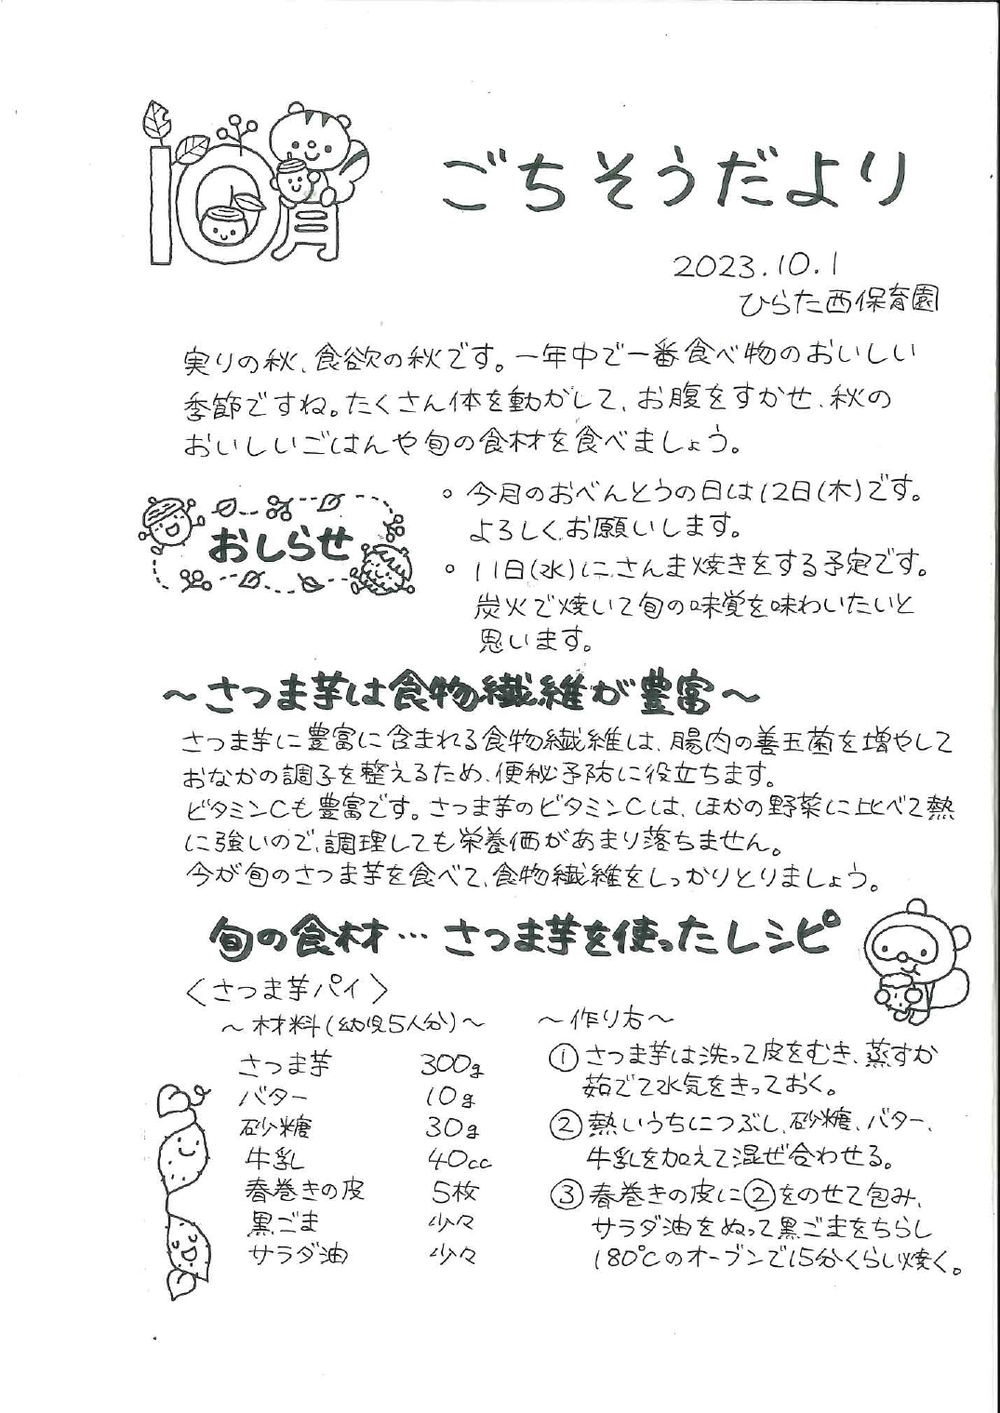 10月
ごちそうだより
2023.10.1
ひらた西保育園
実りの秋、食欲の秋です。一年中で一番食べ物のおいしい
季節ですね。たくさん体を動かして、お腹をすかせ、秋の
おいしいごはんや旬の食材を食べましょう。
おしらせ
。今月のおべんとうの日は12日(木)です。
よろしくお願いします。
。11日(水)に、さんま焼きをする予定です。
炭火で焼いて旬の味覚を味わいたいと
思います。
～さつま芋は食物繊維が豊富～
さつま芋に豊富に含まれる食物繊維は、腸内の善玉菌を増やして
おなかの調子を整えるため、便秘予防に役立ちます。
ビタミンCも豊富です。さつま芋のビタミンCは、ほかの野菜に比べて熱
に強いので、調理しても栄養価があまり落ちません。
今が旬のさつま芋を食べて、食物繊維をしっかりとりましょう。
旬の食材…さつま芋を使ったレシピ
〈さつま芋パイ〉
～材料(幼児5人分)～
さつま芋 300g
バター 10g
砂糖 30g
牛乳 40cc
春巻きの皮 5枚
黒ごま 少々
サラダ油 少々
～作り方～
①さつま芋は洗って皮をむき、蒸すか
茹でて水気をきっておく。
②熱いうちにつぶし、砂糖、バター、
牛乳を加えて混ぜ合わせる。
③春巻きの皮に②をのせて包み、
サラダ油をぬって黒ごまをちらし
180℃のオーブンで15分くらい焼く。